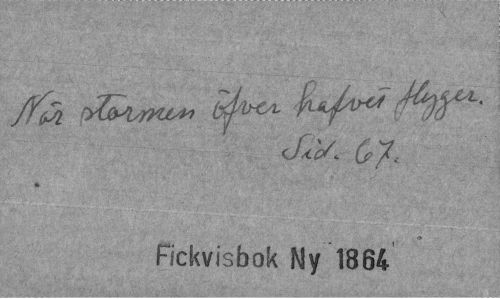 När stormen öfver hafvet flyger.
Sid. 67.
Fickvisbok Ny 1864